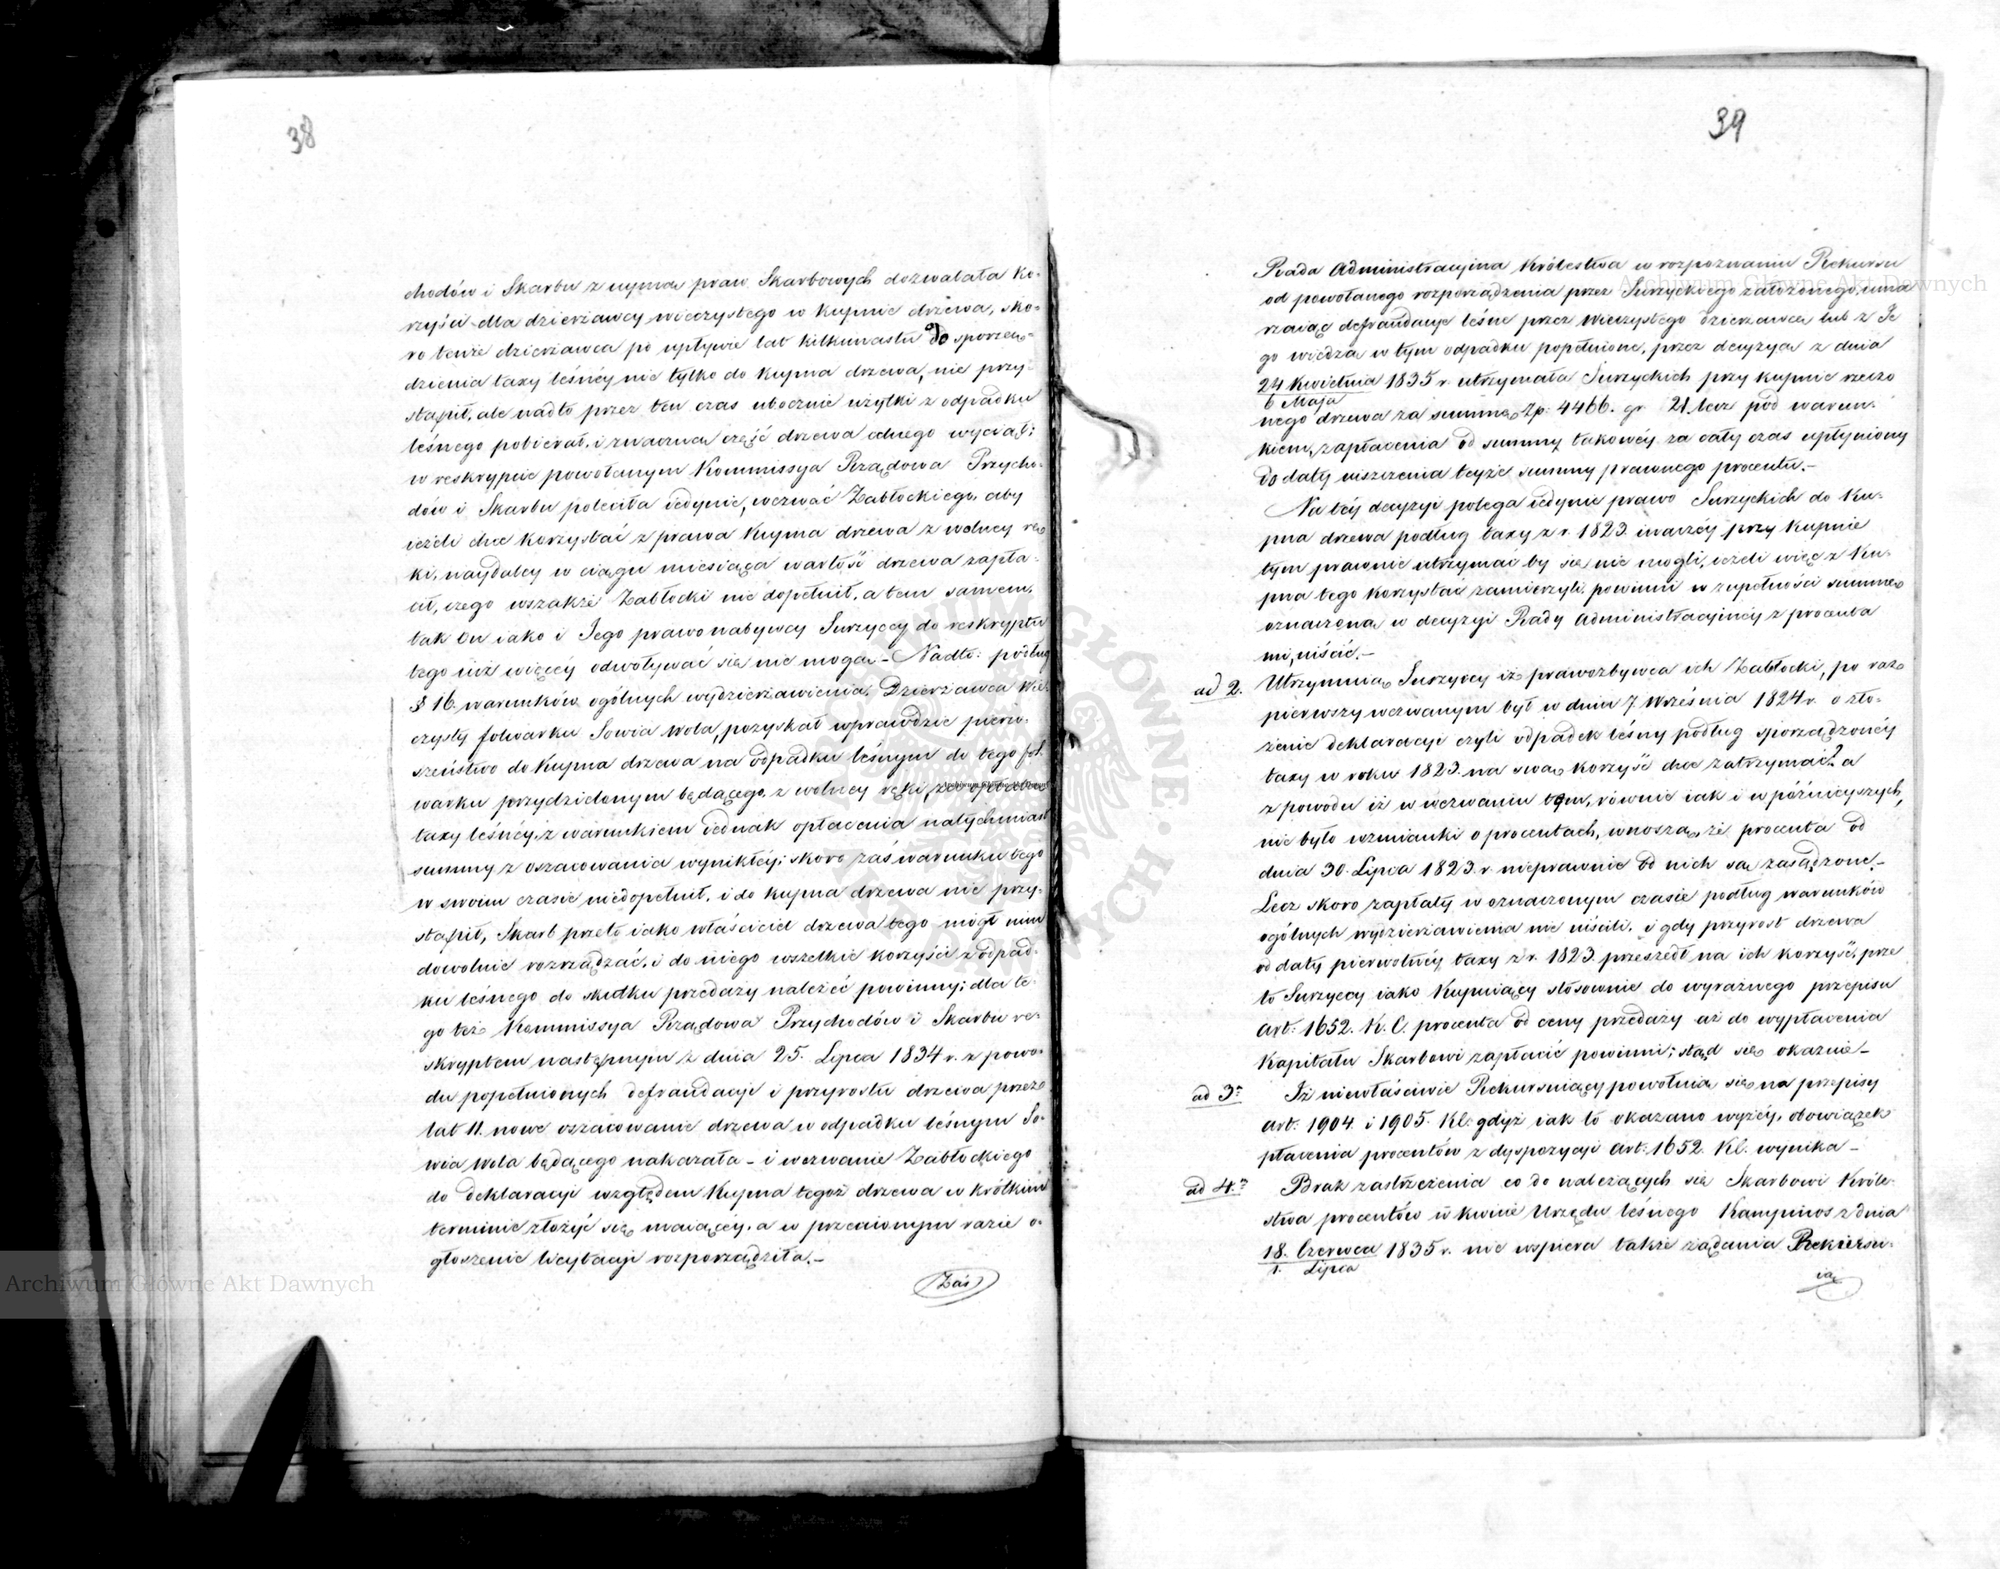 38
chodów i Skarbu z ujmą praw Skarbowych dozwalała ko-
rzyści dla dzierżawcy wieczystego w kupnie drzewa, sko-
ro tenże dzierżawca po upływie lat kilkunastu do sporzą-
dzenia taxy leśnéy nie tylko do kupna drzewa, nie przy-
stąpił, ale nadto przez ten czas ubocznie użytki z odpadku
leśnego pobierał, i znaczną część drzewa celnego wyciął;
w reskrypcie powołanym Kommissya Rządowa Przycho-
dów i Skarbu poleciła iedynie, wezwać Zabłockiego, aby
ieżeli chce korzystać z prawa kupna drzewa z wolney rę-
ki, naydaley w ciągu miesiąca wartość drzewa zapła-
cił, czego wszakże Zabłocki nie dopełnił, a tem samem,
tak On iako i Jego prawonabywcy Surzyccy do reskryptu
tego iuż więcéy odwoływać się nie mogą – Nadto: podług
§ 16 warunków ogólnych wydzierżawienia, Dzierżawca wie-
czysty folwarku Sowia wola, pozyskał wprawdzie pierw-
szeństwo do kupna drzewa na odpadku leśnym do tego fol-
warku przydzielonym będącego, z wolney ręki,
taxy leśnéy, z warunkiem iednak opłacenia natychmiast
summy z oszacowania wynikłéy; skoro zaś warunku tego
w swoim czasie niedopełnił, i do kupna drzewa nie przy-
stąpił, Skarb przeto iako właściciel drzewa tego mógł nim
dowolnie rozrządzać, i do niego wszelkie korzyści z odpad-
ku leśnego do skutku przedaży należéć powinny; dla te-
go też Kommissya Rządowa Przychodów i Skarbu re-
skryptem następnym z dnia 25. Lipca 1834 r. z powo-
du popełnionych defraudacyi i przyrostu drzewa przez
lat 11. nowe oszacowanie drzewa w odpadku leśnym So-
wia wola będącego nakazała – i wezwanie Zabłockiego
do deklaracyi względem kupna tegoż drzewa w krótkim
terminie złożyć się maiącéy, a w przeciwnym razie o-
głoszenie licytacyi rozporządziła.–
Zaś
39
Rada Administracyina Królestwa w rozpoznaniu Rekursu
od powołanego rozporządzenia przez Surzyckiego założonego, uma-
rzaiąc defraudacye leśne przez wieczystego dzierżawcę lub z Je-
go wiedzą w tym odpadku popełnione, przez decyzyą z dnia
24 Kwietnia 1835 r. utrzymała Surzyckich przy kupnie rzeczo-
6 Maja
nego drzewa za summę Zp: 4466. gr 21. lecz pod warun-
kiem, zapłacenia od summy takowéy za cały czas upłyniony
do daty uiszczenia teyże summy prawnego procentu.–
Na téy decyzyi polega iedynie prawo Surzyckich do ku-
pna drzewa podług taxy z r. 1823. inaczéy przy kupnie
tym prawnie utrzymać by się nie mogli, ieżeli więc z ku-
pna tego korzystać zamierzyli, powinni w zupełności summę
oznaczoną w decyzyi Rady Administracyinéy z procenta-
mi, uiścić.–
ad 2. Utrzymuią Surzyccy iż prawozbywca ich Zabłocki, po raz
pierwszy wezwanym był w dniu 7 Września 1824 r. o zło-
żenie deklaracyi czyli odpadek leśny podług sporządzonéy
taxy w roku 1823. na swą korzyść chce zatrzymać? a
z powodu iż w wezwaniu tem, równie iak i w późnieyszych,
nie było wzmianki o procentach, wnoszą, że procenta od
dnia 30. Lipca 1823. r. nieprawnie od nich są zasądzone.–
Lecz skoro zapłaty w oznaczonym czasie podług warunków
ogólnych wydzierżawienia nie uiścili, i gdy przyrost drzewa
od daty pierwotnéy taxy z r. 1823. przeszedł na ich korzyść, prze-
to Surzyccy iako kupuiący stósownie do wyraźnego przepisu
art: 1652. K. C. procenta od ceny przedaży aż do wypłacenia
kapitału Skarbowi zapłacić powinni; stąd się okazuie –
ad 3. Iż niewłaściwie Rekursuiący powołuią się na przepisy
art. 1904. i 1905. KC. gdyż iak to okazano wyżéy, obowiązek
płacenia procentów z dyspozycyi art: 1652. KC. wynika –
ad 4. Brak zastrzeżenia co do należących się Skarbowi Króle-
stwa procentów w kwicie Urzędu leśnego Kampinos z dnia
18. Czerwca 1835 r. nie wspiera także żądania Rekursu-
1. Lipca
ią
Archiwum Główne Akt Dawnych
Archiwum Główne Akt Dawnych